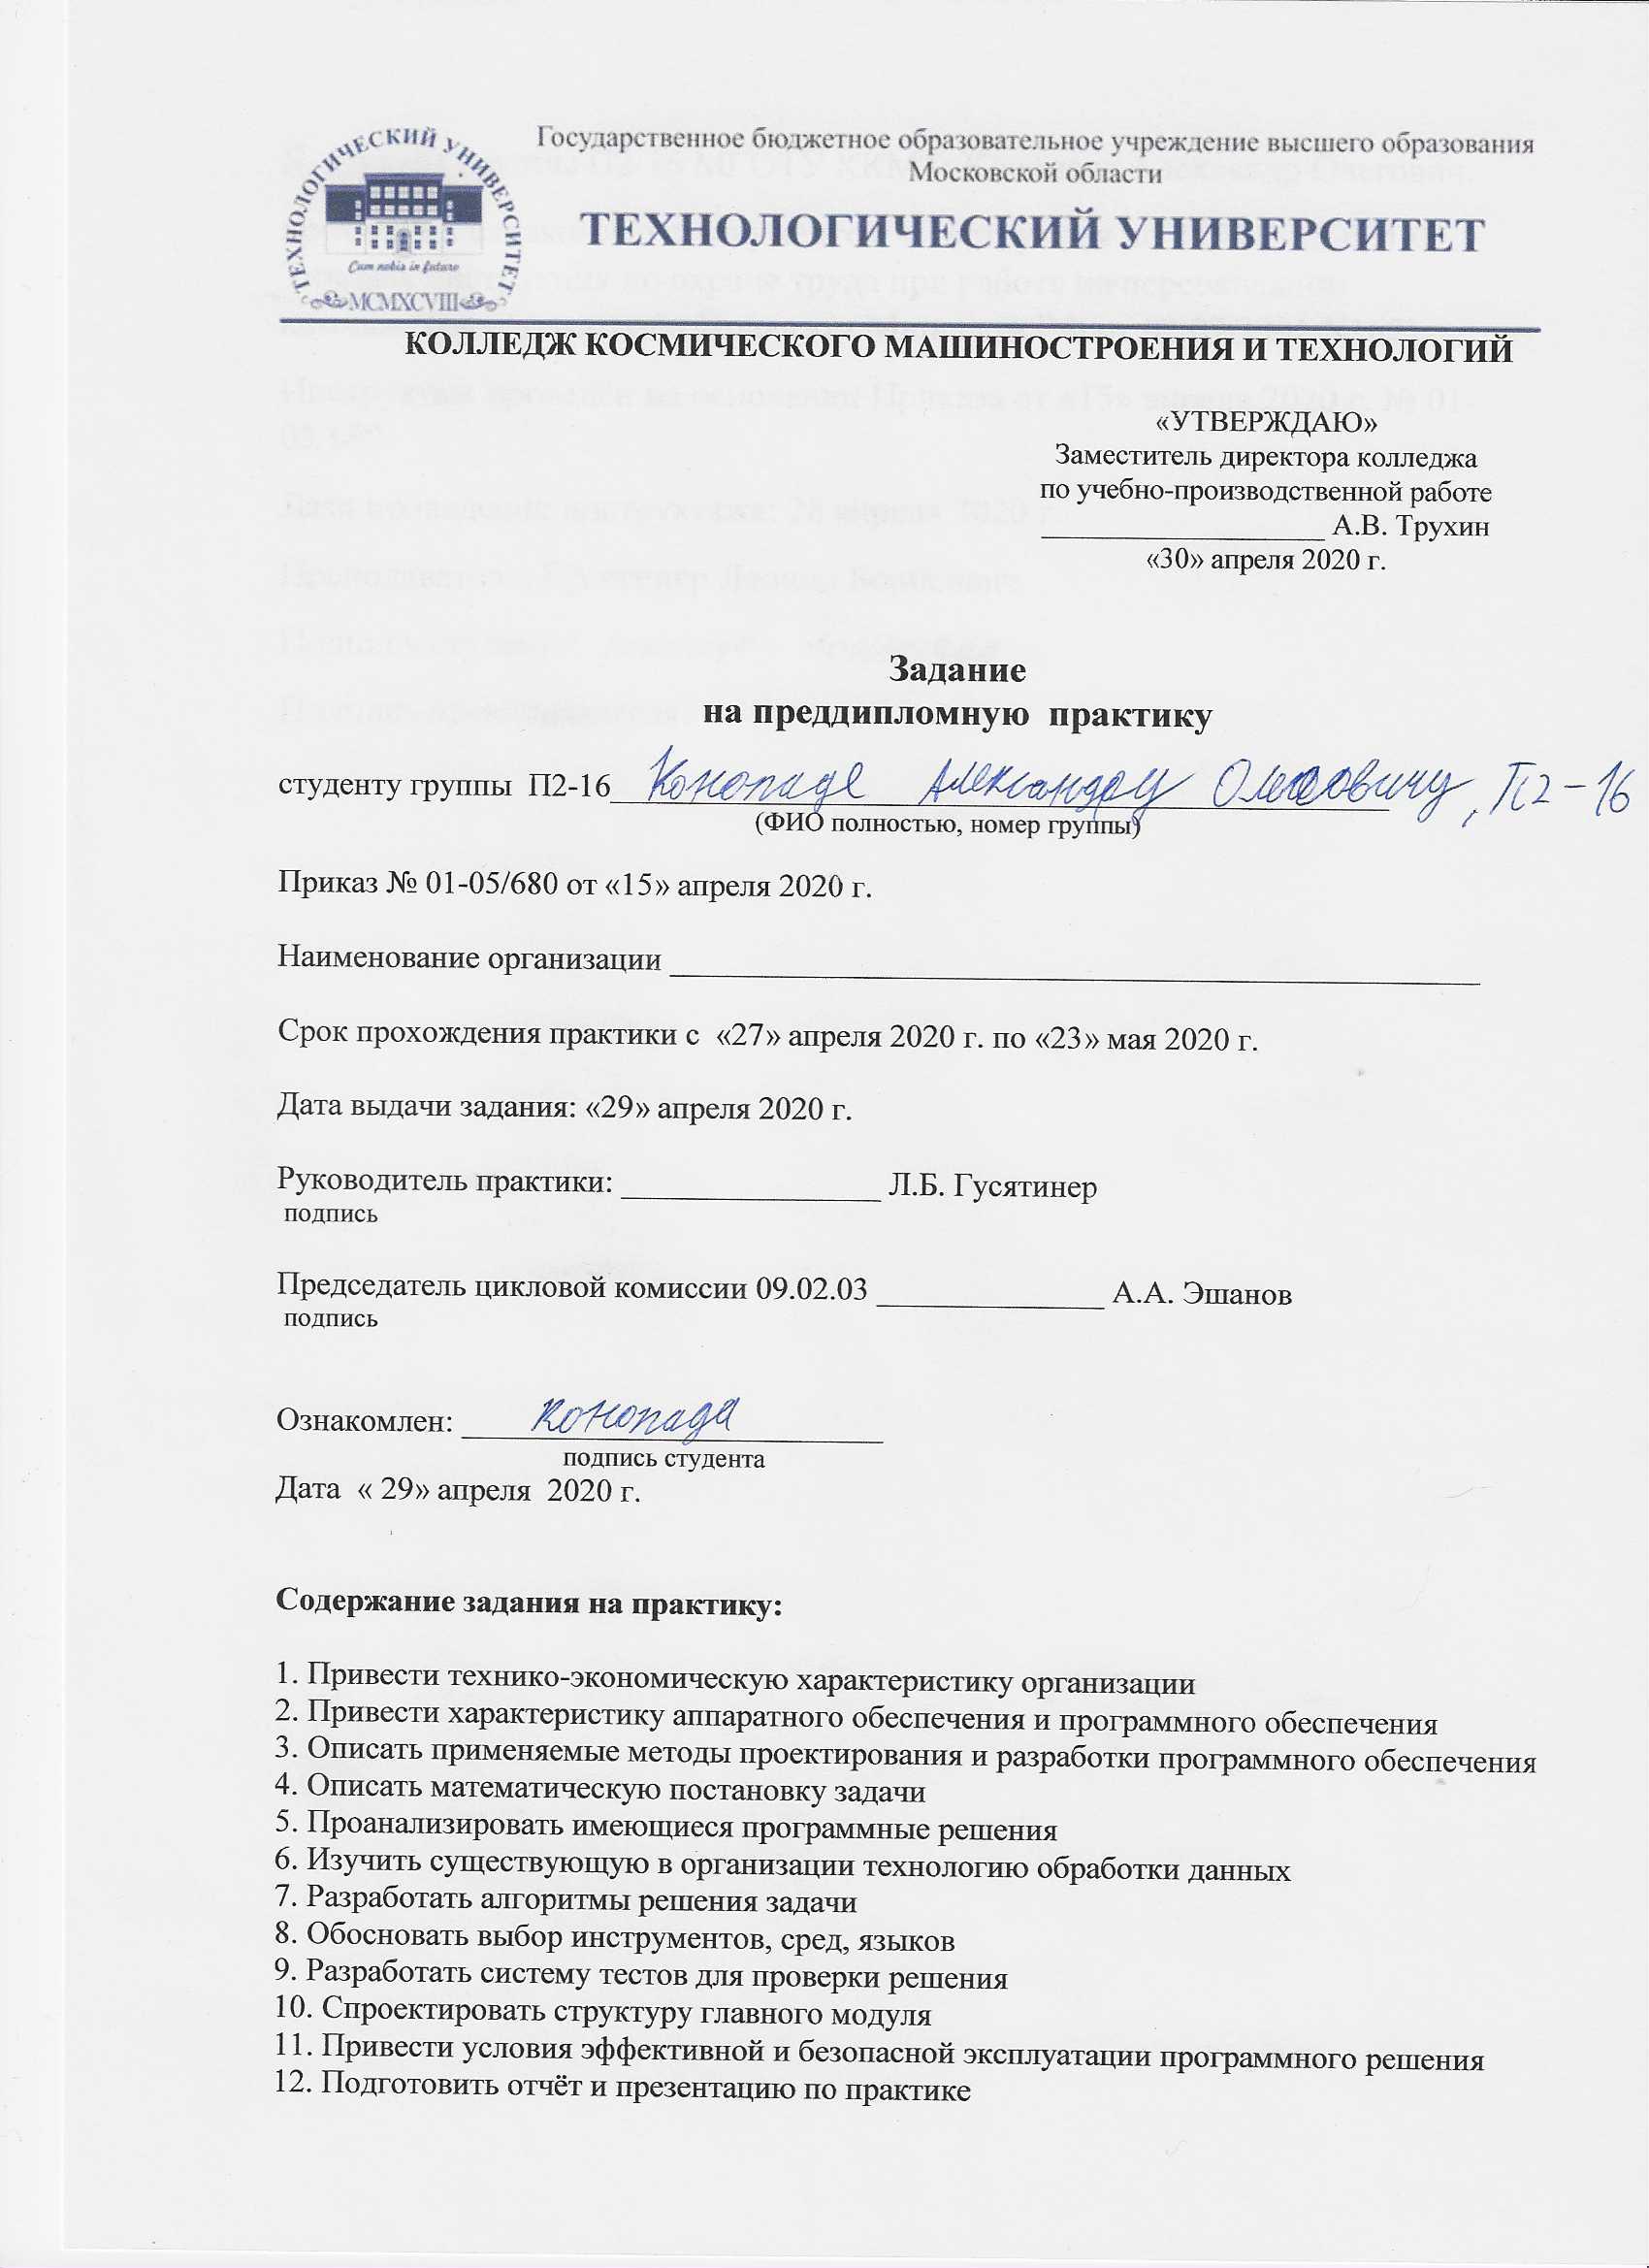 ТЕХНОЛОГИЧЕСКИЙ УНИВЕРСИТЕТ
Cum nobis in futuro
MCMXCVIII
Государственное бюджетное образовательное учреждение высшего образования
Московской области
ТЕХНОЛОГИЧЕСКИЙ УНИВЕРСИТЕТ
КОЛЛЕДЖ КОСМИЧЕСКОГО МАШИНОСТРОЕНИЯ И ТЕХНОЛОГИЙ
«УТВЕРЖДАЮ»
Заместитель директора колледжа
по учебно-производственной работе
_________________ А.В. Трухин
«30» апреля 2020 г.
Задание
на преддипломную практику
студенту группы П2-16 Конопаде Александру Олеговичу, П2-16
(ФИО полностью, номер группы)
Приказ № 01-05/680 от «15» апреля 2020 г.
Наименование организации ____________________
Срок прохождения практики с «27» апреля 2020 г. по «23» мая 2020 г.
Дата выдачи задания: «29» апреля 2020 г.
Руководитель практики: ________________ Л.Б. Гусятинер
подпись
Председатель цикловой комиссии 09.02.03 ______________ А.А. Эшанов
подпись
Ознакомлен: Конопада
подпись студента
Дата « 29» апреля 2020 г.
Содержание задания на практику:
1. Привести технико-экономическую характеристику организации
2. Привести характеристику аппаратного обеспечения и программного обеспечения
3. Описать применяемые методы проектирования и разработки программного обеспечения
4. Описать математическую постановку задачи
5. Проанализировать имеющиеся программные решения
6. Изучить существующую в организации технологию обработки данных
7. Разработать алгоритмы решения задачи
8. Обосновать выбор инструментов, сред, языков
9. Разработать систему тестов для проверки решения
10. Спроектировать структуру главного модуля
11. Привести условия эффективной и безопасной эксплуатации программного решения
12. Подготовить отчёт и презентацию по практике